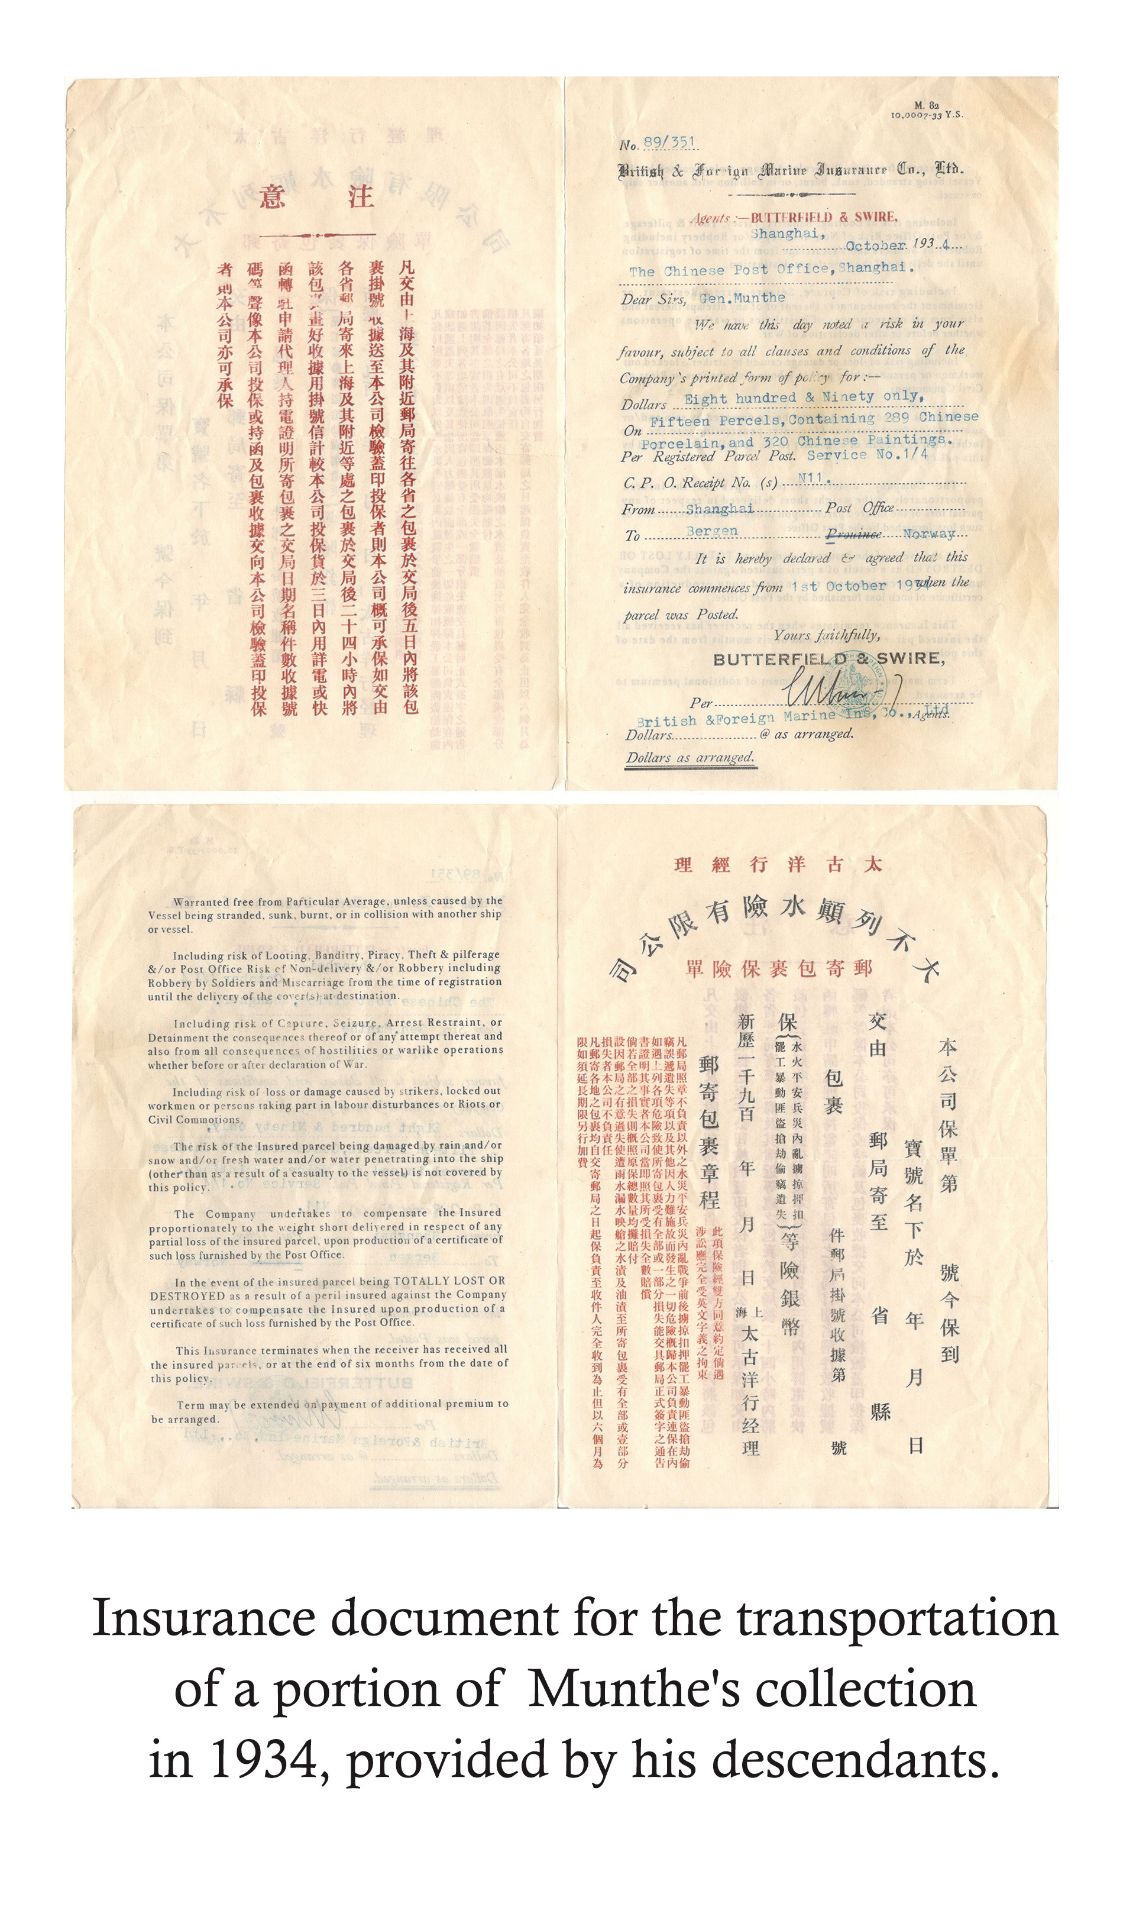 意 注
凡交由上海及其附近郵局寄往各省之包裹於交局後五日內將該包
裹掛號收據送至本公司檢驗蓋印投保者則本公司概可承保如交由
各省郵局寄來上海及其附近等處之包裹於交局後二十四小時內將
該包裹畫好收據用掛號信計較本公司投保貨於三日內用詳電或快
函轉駐申請代理人持電證明所寄包裹之交局日期名稱件數收據號
碼等聲像本公司投保或持函及包裹收據交向本公司檢驗蓋印投保
者則本公司亦可承保
M. 82
10.0007-33 Y.S.
No. 89/351
British & Foreign Marine Insurance Co., Ltd.
Agents:—BUTTERFIELD & SWIRE,
Shanghai,
October 1934
The Chinese Post Office, Shanghai.
Dear Sirs, Gen. Munthe
We have this day noted a risk in your
favour, subject to all clauses and conditions of the
Company's printed form of policy for:—
Dollars Eight hundred & Ninety only,
On Fifteen Percels, Containing 289 Chinese
Porcelain, and 320 Chinese Paintings.
Per Registered Parcel Post. Service No.1/4
C. P. O. Receipt No. (s) N11.
From Shanghai Post Office
To Bergen Province Norway
It is hereby declared & agreed that this
insurance commences from 1st October 1934 when the
parcel was Posted.
Yours faithfully,
BUTTERFIELD & SWIRE,
Per
British & Foreign Marine Ins, Co., Ltd Agents.
Dollars @ as arranged.
Dollars as arranged.
Warranted free from Particular Average, unless caused by the
Vessel being stranded, sunk, burnt, or in collision with another ship
or vessel.
Including risk of Looting, Banditry, Piracy, Theft & pilferage
&/or Post Office Risk of Non-delivery &/or Robbery including
Robbery by Soldiers and Miscarriage from the time of registration
until the delivery of the cover(s) at destination.
Including risk of Capture, Seizure, Arrest Restraint, or
Detainment the consequences thereof or of any attempt thereat and
also from all consequences of hostilities or warlike operations
whether before or after declaration of War.
Including risk of loss or damage caused by strikers, locked out
workmen or persons taking part in labour disturbances or Riots or
Civil Commotions.
The risk of the Insured parcel being damaged by rain and/or
snow and/or fresh water and/or water penetrating into the ship
(other than as a result of a casualty to the vessel) is not covered by
this policy.
The Company undertakes to compensate the Insured
proportionately to the weight short delivered in respect of any
partial loss of the insured parcel, upon production of a certificate of
such loss furnished by the Post Office.
In the event of the insured parcel being TOTALLY LOST OR
DESTROYED as a result of a peril insured against the Company
undertakes to compensate the Insured upon production of a
certificate of such loss furnished by the Post Office.
This Insurance terminates when the receiver has received all
the insured parcels, or at the end of six months from the date of
this policy.
Term may be extended on payment of additional premium to
be arranged.
理經行洋古太
司公限有險水顚列不大
單險保裹包寄郵
本公司保單第 號今保到
寶號名下於 年 月 日
交由 郵局寄至 省 縣
包裹 件郵局掛號收據第 號
保(水火平安兵災內亂擄掠押扣
罷工暴動匪盜搶劫偷竊遺失)等險銀幣
新歷一千九百 年 月 日 上海太古洋行经理
郵寄包裹章程
此項保險經雙方同意約定倘遇
涉訟應完全受英文字義之拘束
凡郵局照章不負責以外之水災平安兵災內亂戰爭前後擄掠扣押罷工暴動匪盜搶劫偷
竊誤遞遺失等項以及其他因人力難施故而發生之一切危險概歸本公司負責連保在內
如遇上列各項危險致使所寄包裹受有全部或一部分損失能交具郵局正式簽字之通告
書證明其事實者本公司當即照其所受損失全數賠償
倘若全部之損失則概照原保總數量均攤賠付
設因郵局之有意過失使遭雨水漏水映艙之水漬及油漬至所寄包裹受有全部或壹部分
損失者本公司不負責任
凡郵寄各地之包裹均自交寄郵局之日起保負責至收件人完全收到為止但以六個月為
限如須延長期限另行加費
Insurance document for the transportation
of a portion of Munthe's collection
in 1934, provided by his descendants.